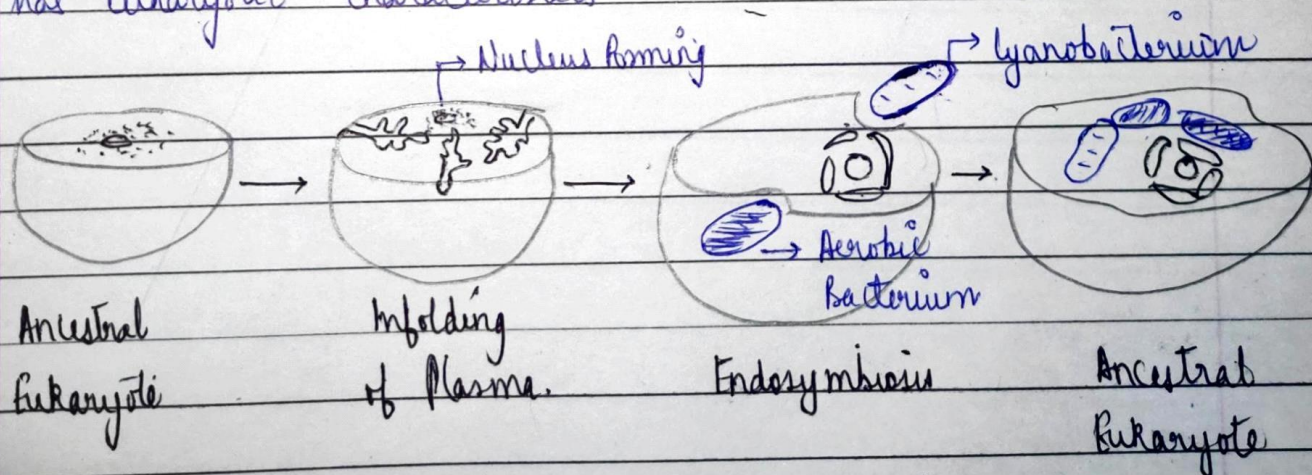 Nucleus Forming
Cyanobacterium
Aerobic
Bacterium
Ancestral
Eukaryote
Infolding
of Plasma.
Endosymbiosis
Ancestral
Eukaryote